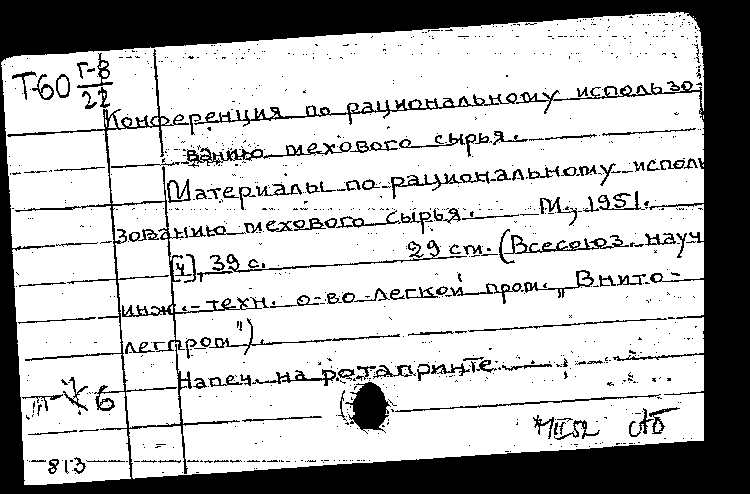 Т-60 Г-8
22
Конференция по рациональному использо-
ванию мехового сырья.
Материалы по рациональному исполь
зованию мехового сырья. М., 1951.
[4], 39 с. 29 см. (Всесоюз. науч
инж.-техн. о-во легкой пром. „Внито-
легпром").
Напеч. на ротапринте
6
813